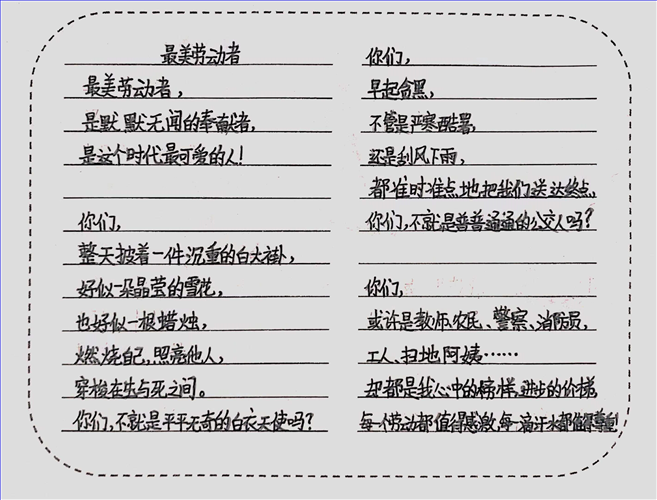 最美劳动者
最美劳动者，
是默默无闻的奉献者，
是这个时代最可爱的人！
你们，
整天披着一件沉重的白大褂，
好似一朵晶莹的雪花，
也好似一根蜡烛，
燃烧自己，照亮他人，
穿梭在生与死之间。
你们，不就是平平无奇的白衣天使吗？
你们，
早起贪黑，
不管是严寒酷暑，
还是刮风下雨，
都准时准点地把我们送达终点，
你们，不就是普普通通的公交人吗？
你们，
或许是教师、农民、警察、消防员，
工人、扫地阿姨……
却都是我心中的榜样，进步的阶梯，
每一份劳动都值得感激，每一滴汗水都值得尊重！